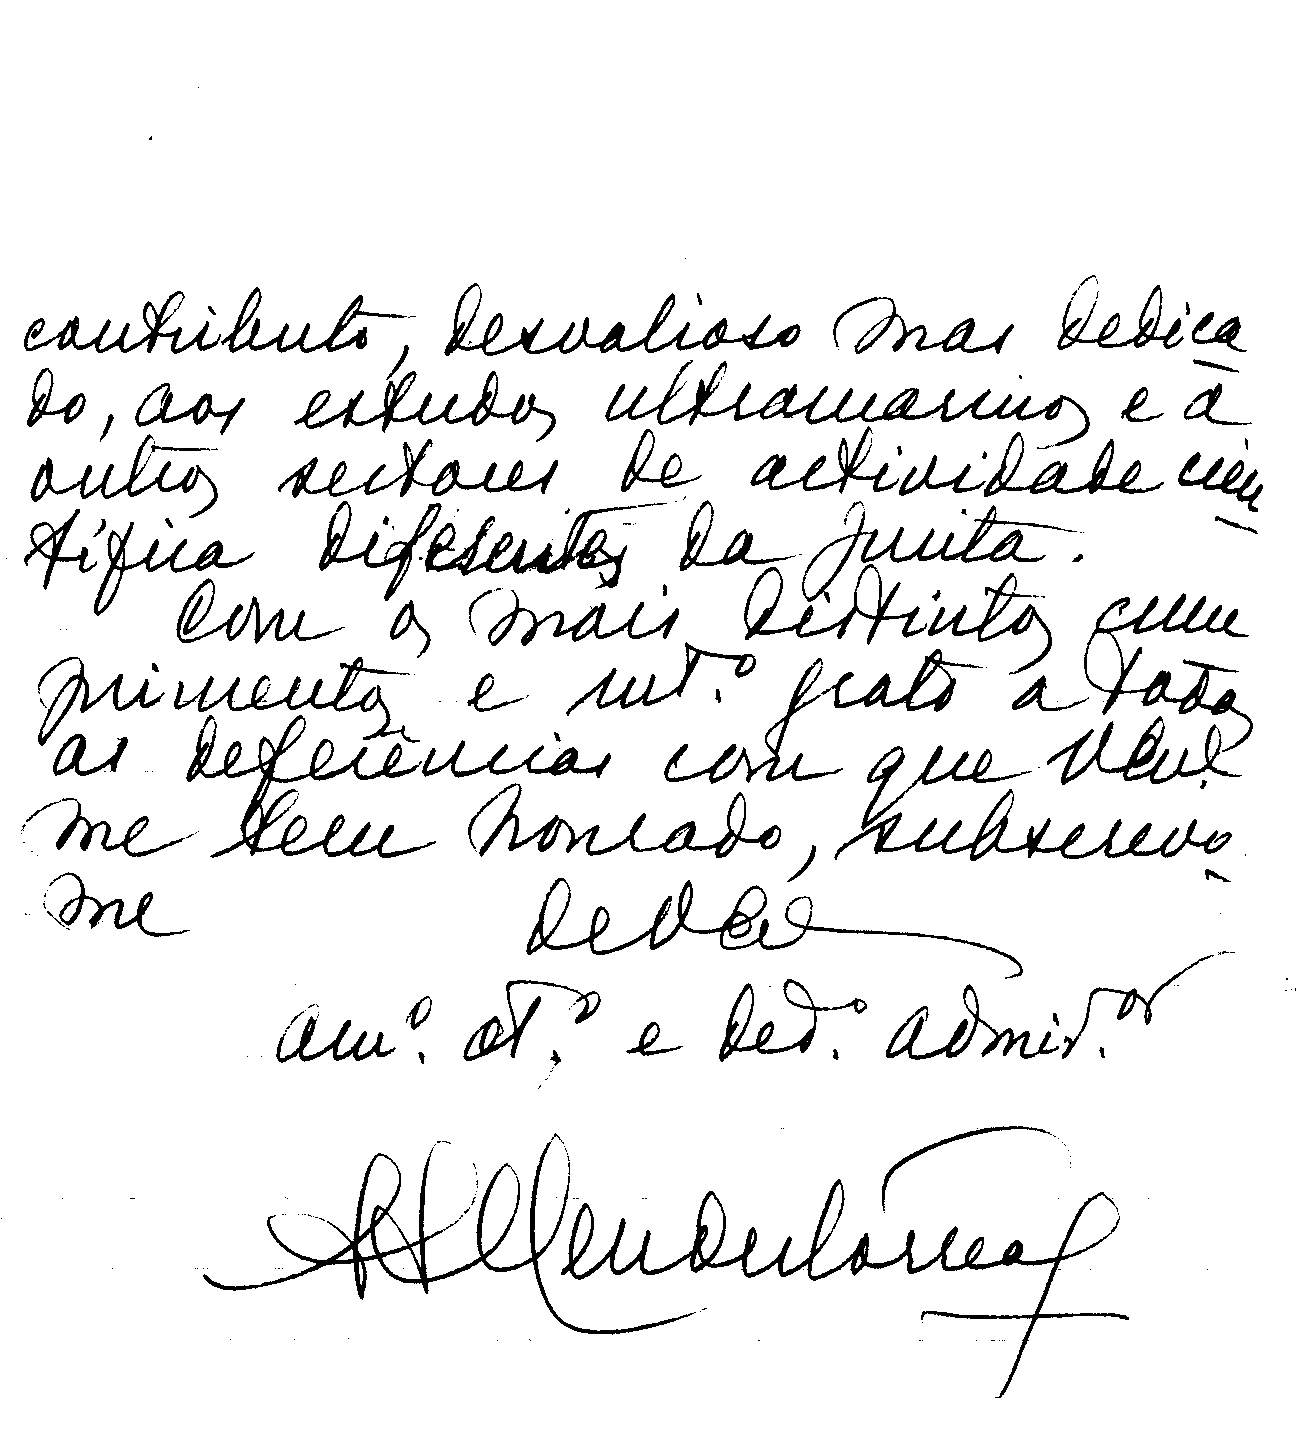 contributo, desvalioso mas dedica
do, aos estudos ultramarinos e a
outros sectores de actividade cien
tífica diferentes da Junta.
Com os mais distintos cum
primentos e mt.º grato a todas
as deferências com que V Ex.ª
me tem honrado, subscrevo
me de V Ex.ª
am.º at.º e ded.º admir.or
Mendes Corrêa